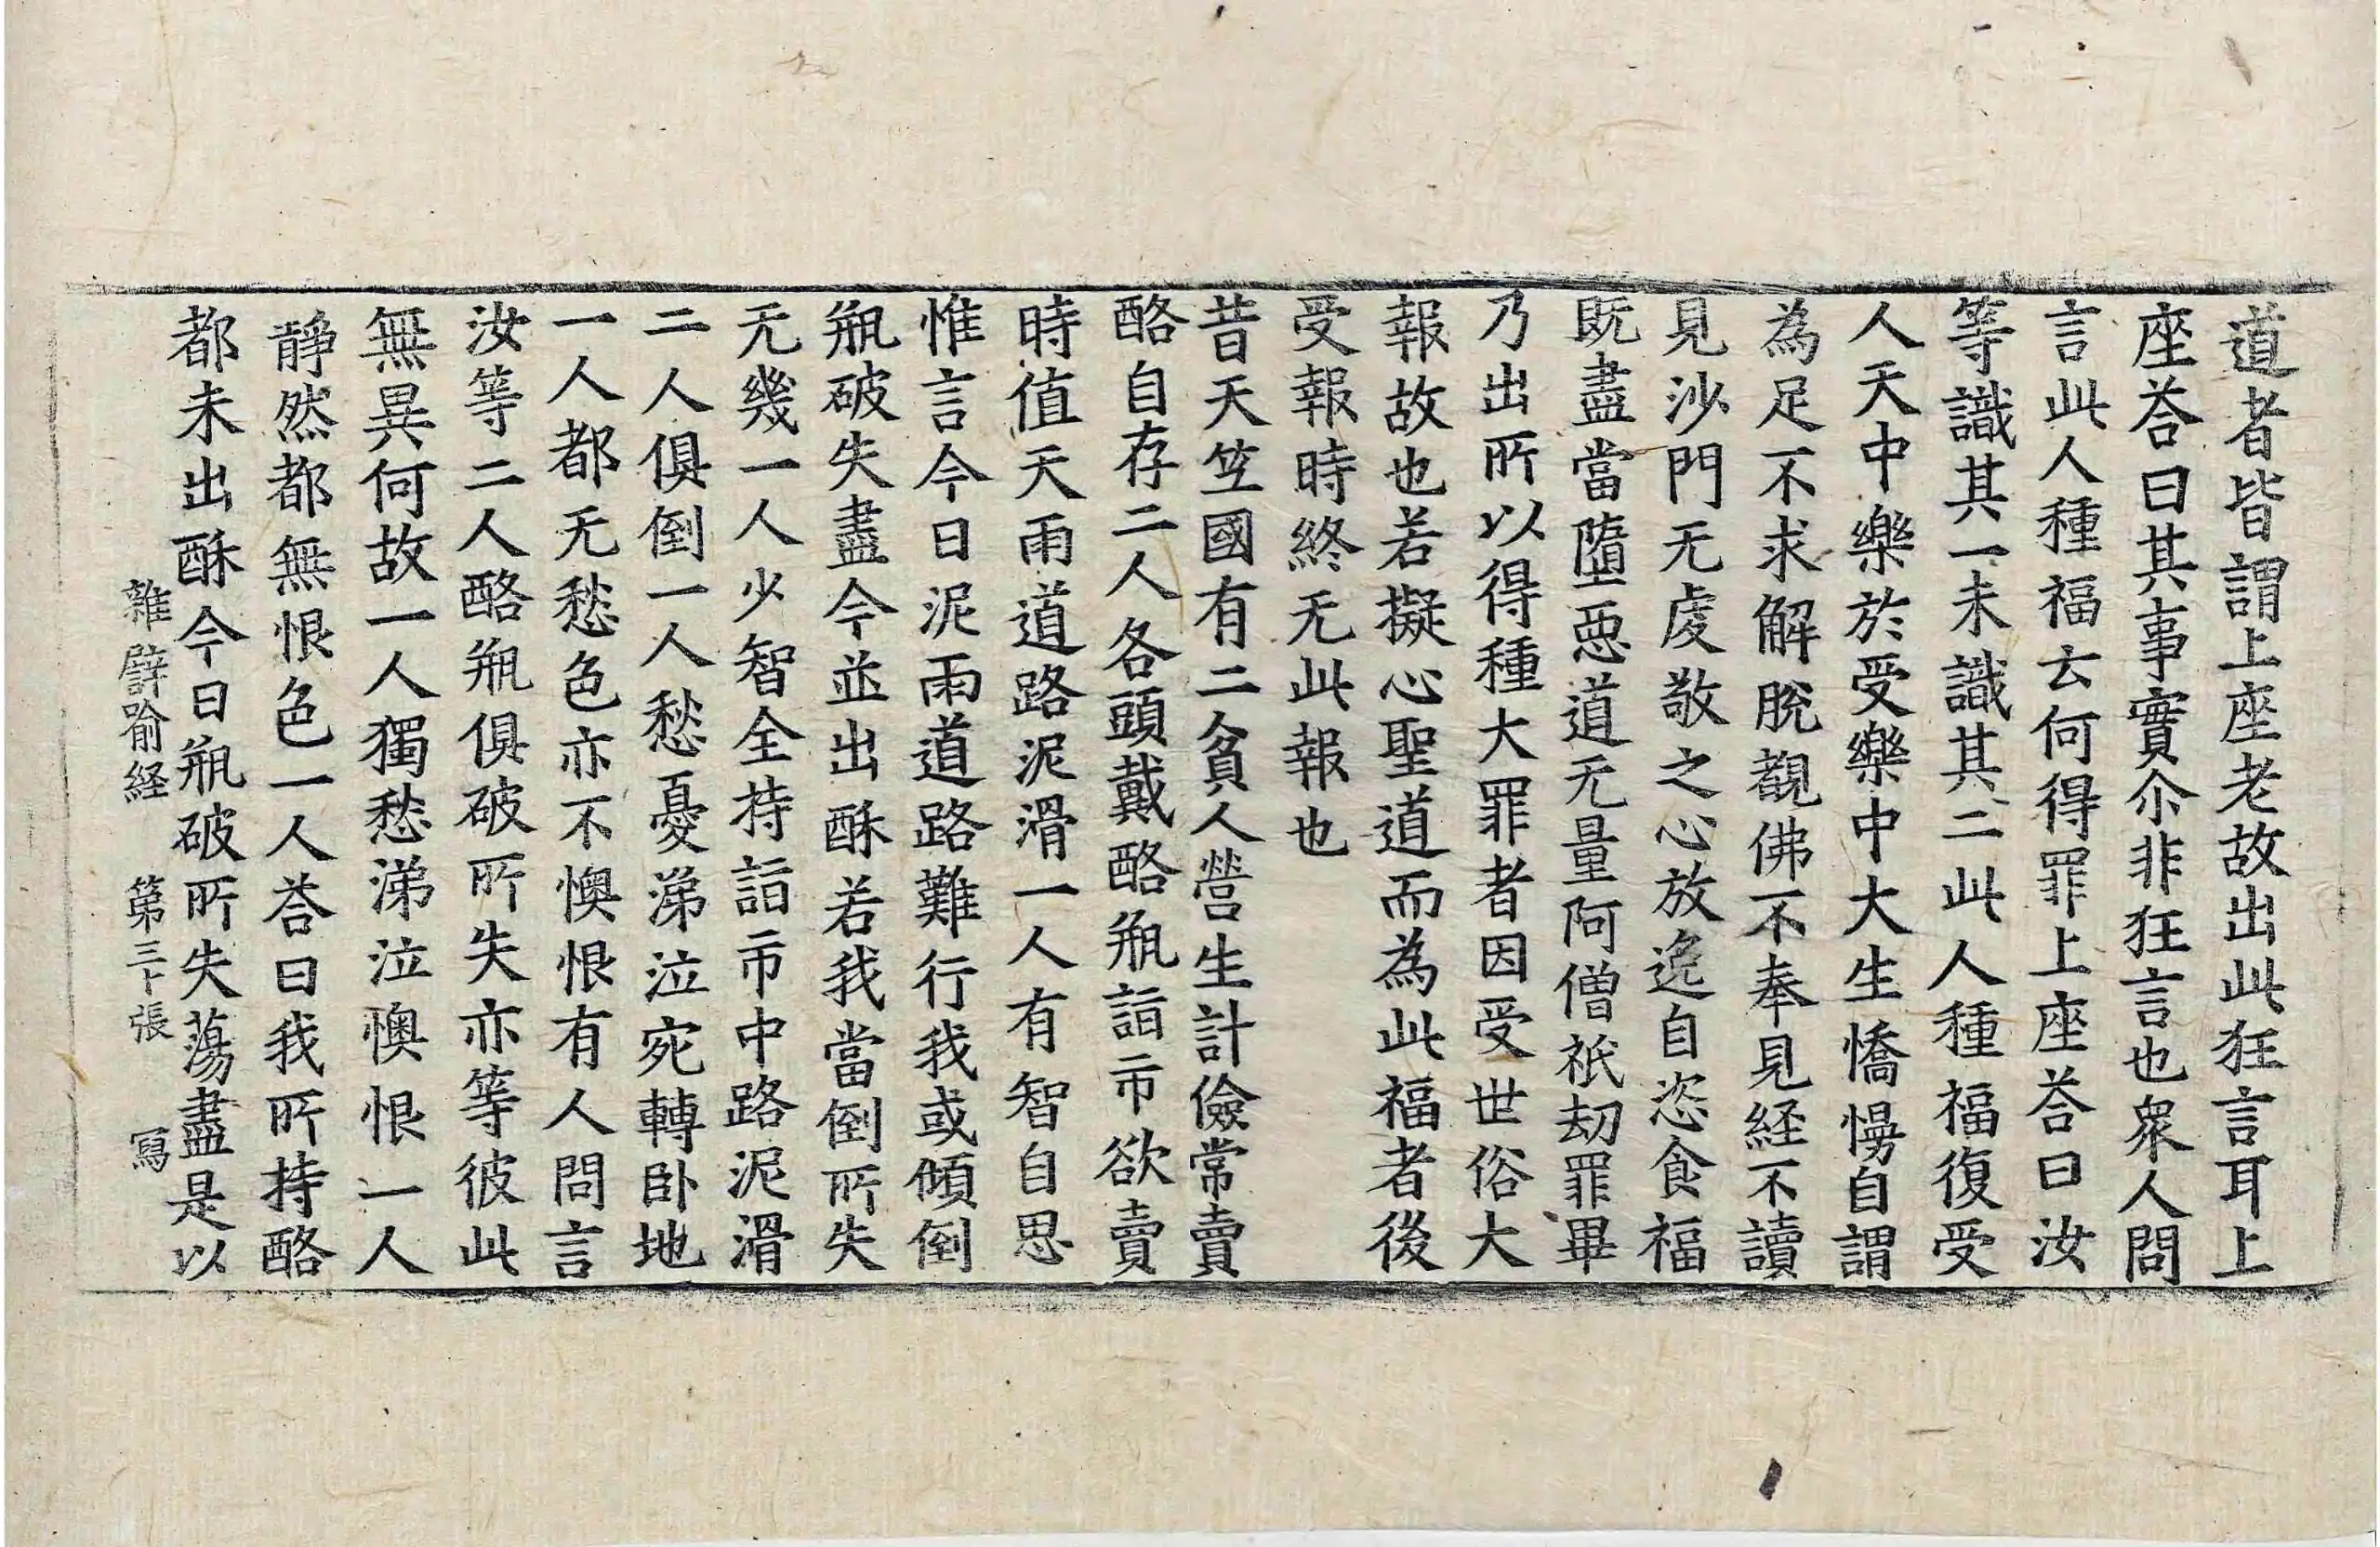 道者皆謂上座老故出此狂言耳上
座荅曰其事實尒非狂言也衆人問
言此人種福云何得罪上座荅曰汝
等識其一未識其二此人種福復受
人天中樂於受樂中大生憍慢自謂
為足不求解脫覩佛不奉見経不讀
見沙門无䖏敬之心放逸自恣食福
既盡當墮惡道无量阿僧祇劫罪畢
乃出所以得種大罪者因受世俗大
報故也若擬心聖道而為此福者後
受報時終无此報也
昔天竺國有二貧人營生計儉常賣
酪自存二人各頭戴酪瓶詣市欲賣
時值天雨道路泥滑一人有智自思
惟言今日泥雨道路難行我或傾倒
瓶破失盡今並出酥若我當倒所失
无幾一人少智全持詣市中路泥滑
二人俱倒一人愁憂涕泣宛轉卧地
一人都无愁色亦不懊恨有人問言
汝等二人酪瓶俱破所失亦等彼此
無異何故一人獨愁涕泣懊恨一人
靜然都無恨色一人荅曰我所持酪
都未出酥今日瓶破所失蕩盡是以
雜譬喻経 第三十張 寫